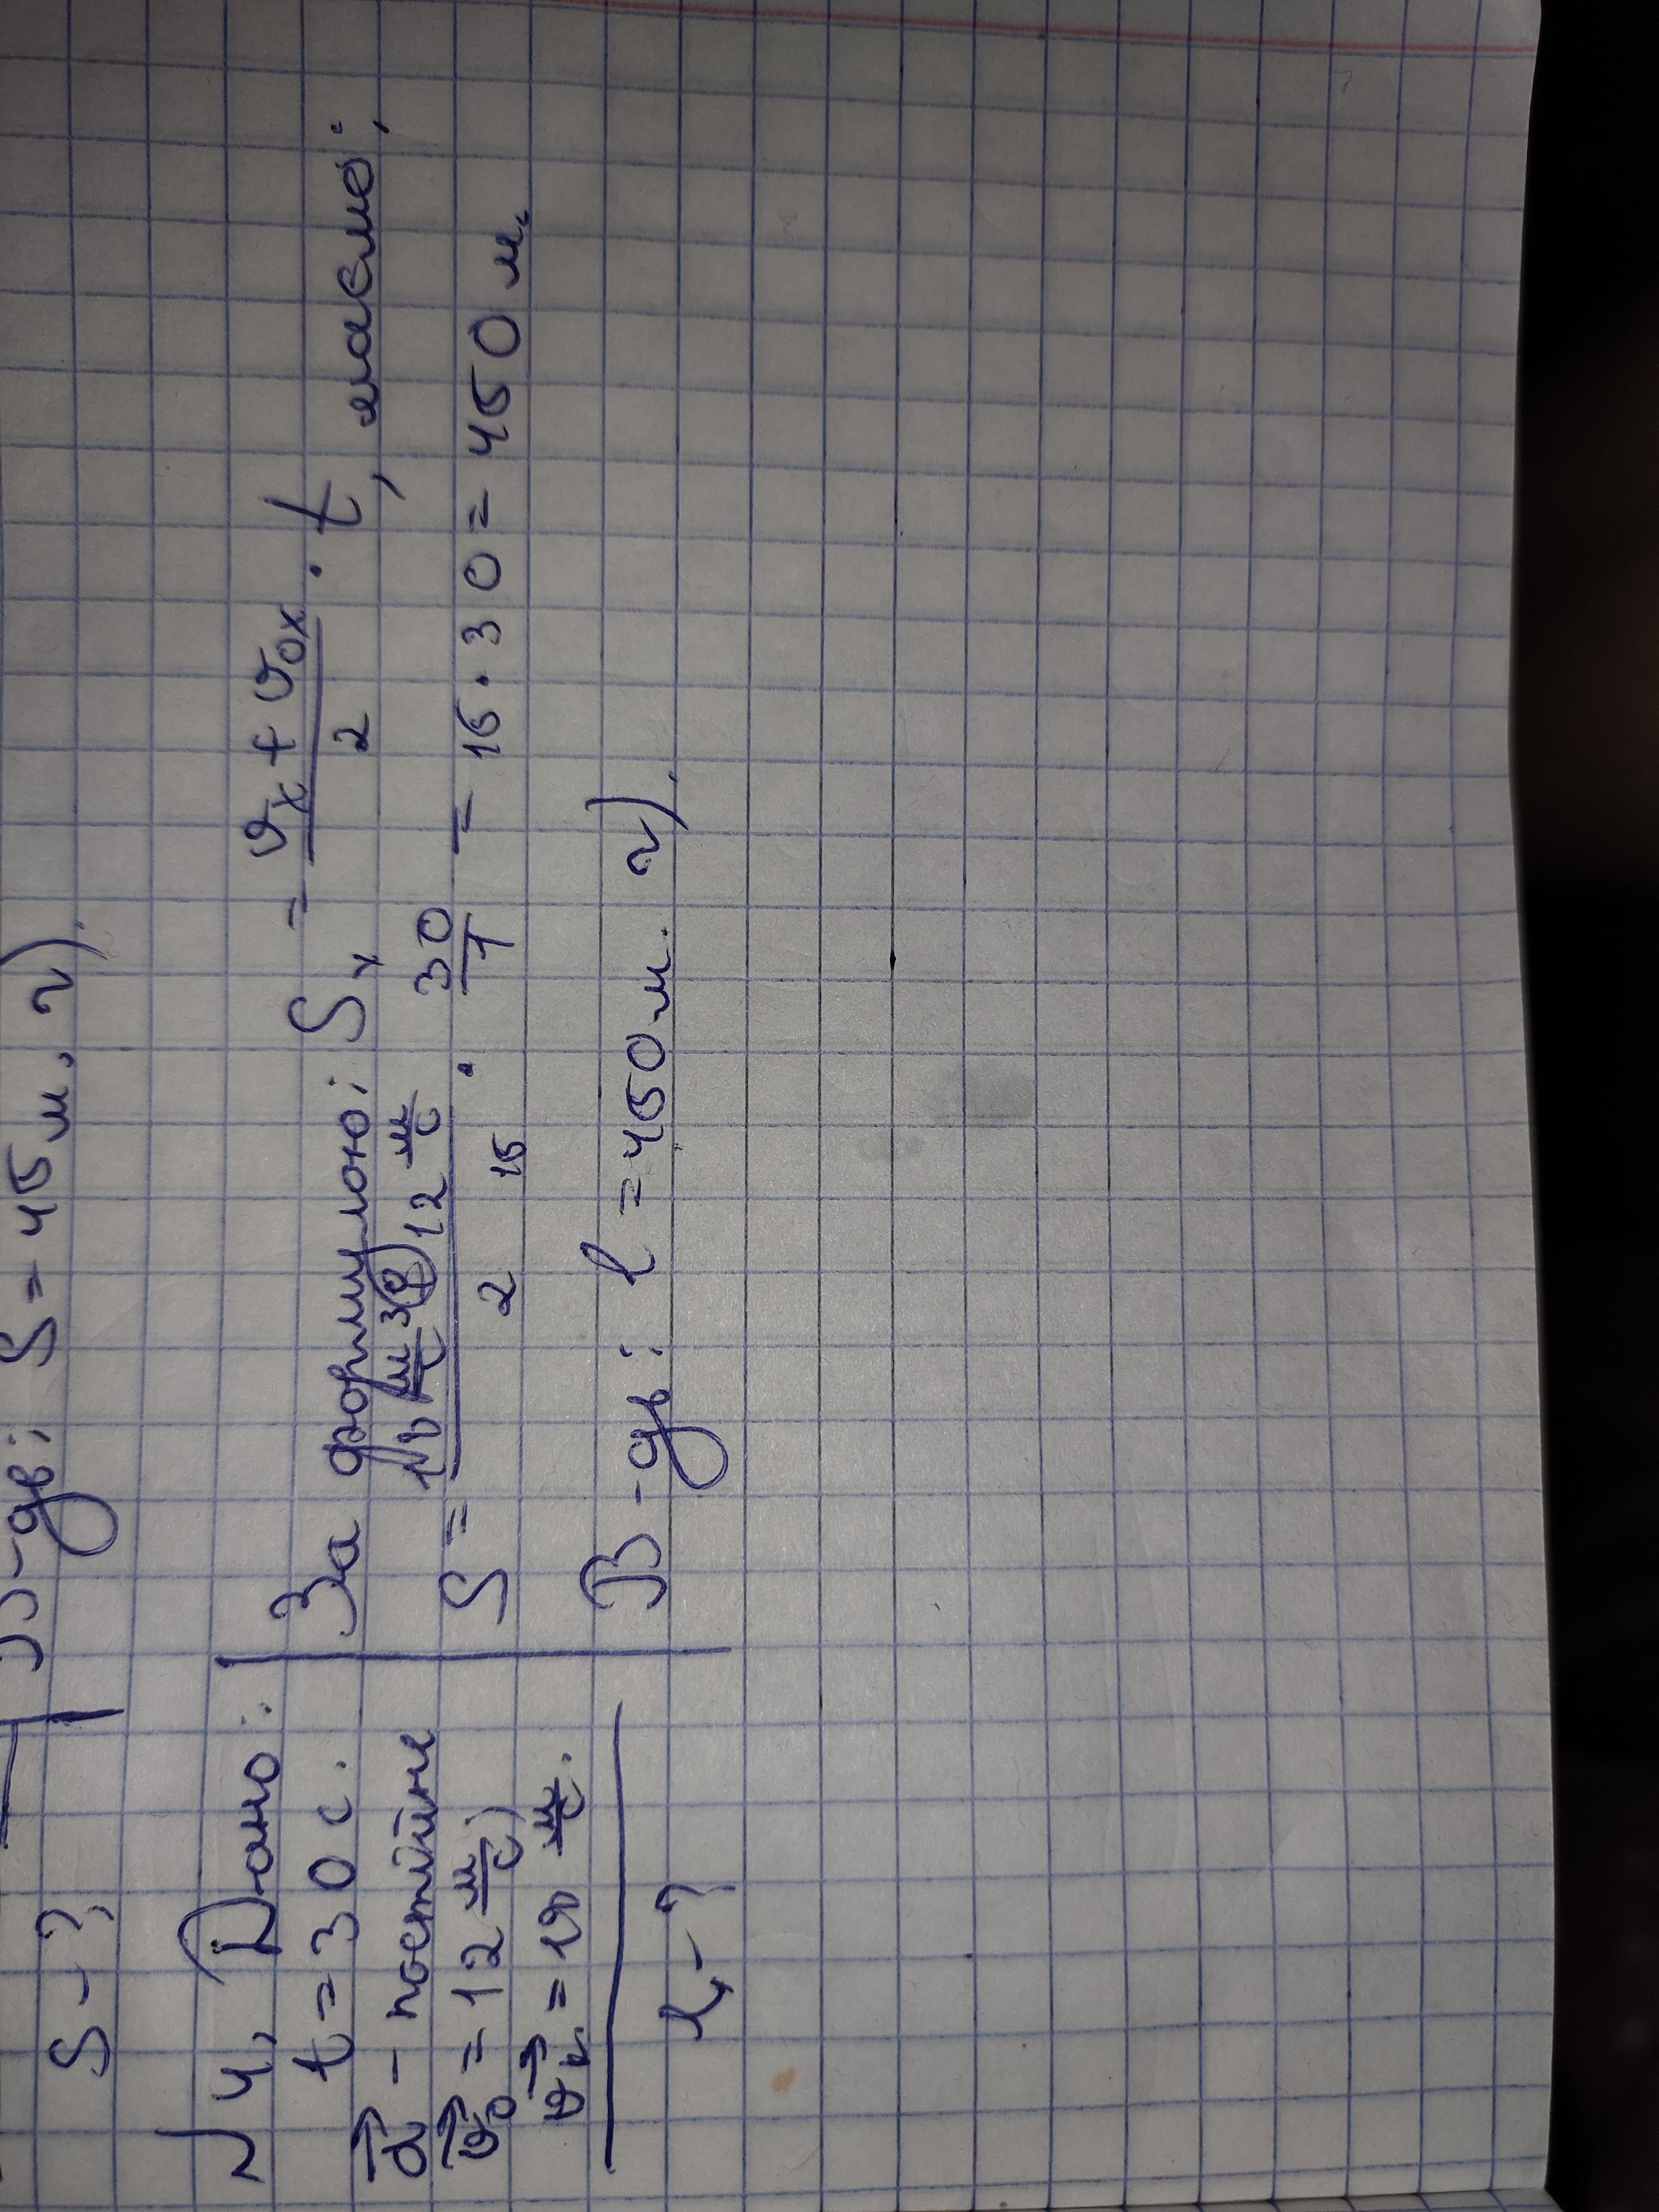 В-дь: S = 45 м. г).
S - ?
№4. Дано:
t = 30 с.
a⃗ - постійне
v⃗₀ = 12 м/с;
v⃗ₖ = 18 м/с.
l - ?
За формулою: Sₓ = (vₓ + v₀ₓ)/2 · t, маємо:
S = (18 м/с + 12 м/с)/2 · 30/1 = 15 · 30 = 450 м.
В-дь: l = 450 м. г).